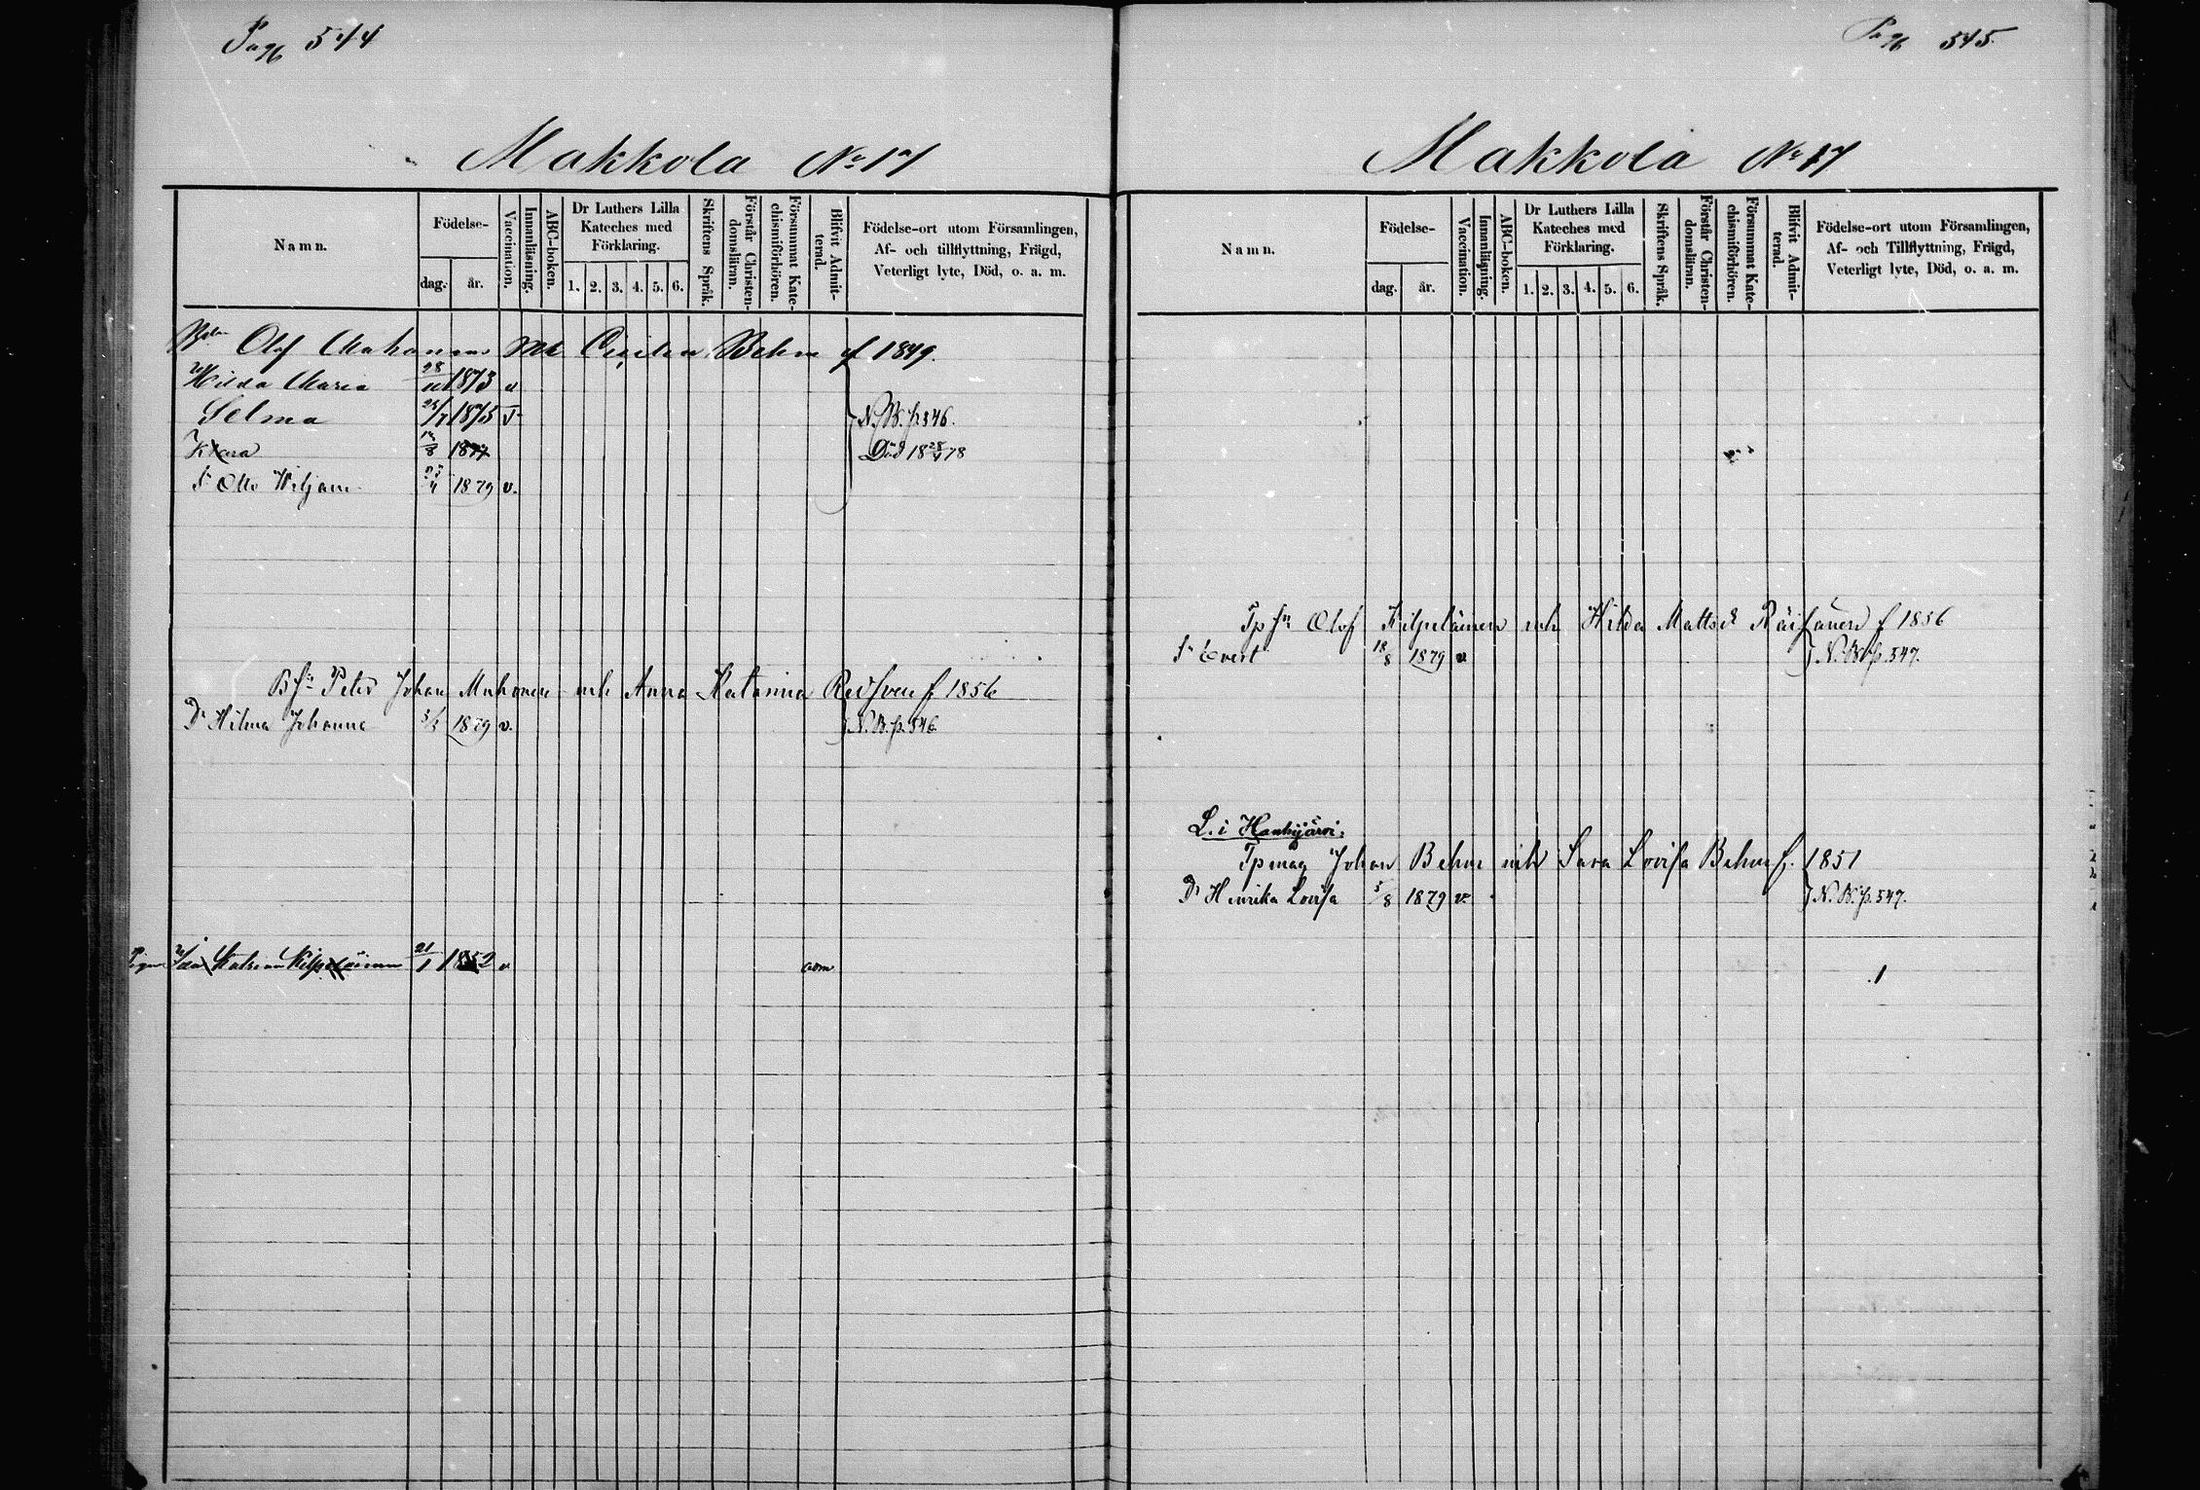 Pag 544
Makkola No 17
Namn.
Födelse-
dag.
år.
Vaccination.
Innanläsning.
ABC-boken.
Dr Luthers Lilla
Kateches med
Förklaring.
1. 2. 3. 4. 5. 6.
Skriftens Språk.
Förstår Christen-
domsläran.
Försummat Kate-
chismiförhören.
Blifvit Admit-
terad.
Födelse-ort utom Församlingen,
Af- och tillflyttning, Frägd,
Veterligt lyte, Död, o. a. m.
Olof Muhonen Cecilia Behm f 1849.
Hilda Maria 28/11 1873 v
Selma 1875 v N. B. p. 546.
Klara 1877 Död 18 78
Sn Otto Wiljam 23/4 1879 v.
Bsn Peter Johan Muhonen mh Anna Katarina f 1856
Dr Hilma Johanna 5/3 1879 v. N. B. p. 546
Pigan Katrina Kilpeläinen 21/1 1852 v adm
Pag 545
Makkola No 17
Namn.
Födelse-
dag.
år.
Vaccination.
Innanläsning.
ABC-boken.
Dr Luthers Lilla
Kateches med
Förklaring.
1. 2. 3. 4. 5. 6.
Skriftens Språk.
Förstår Christen-
domsläran.
Försummat Kate-
chismiförhören.
Blifvit Admit-
terad.
Födelse-ort utom Församlingen,
Af- och Tillflyttning, Frägd,
Veterligt lyte, Död, o. a. m.
Tpsn Olof Kilpeläinen mh Hilda Matts dr Räisänen f 1856
Sn Evert 18/8 1879 v. N. B. p. 547.
L. i Hanhijärvi.
Tpmåg Johan Behm mh Sara Lovisa Behm f. 1851
Dr Henrika Lovisa 5/8 1879 v. N. B. p. 547.